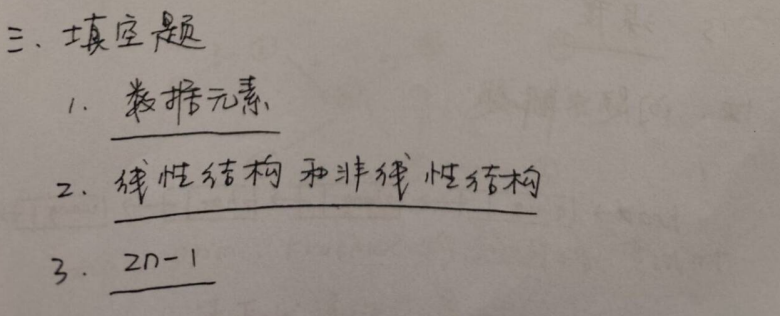 三、填空题
1. 数据元素
2. 线性结构和非线性结构
3. 2n-1